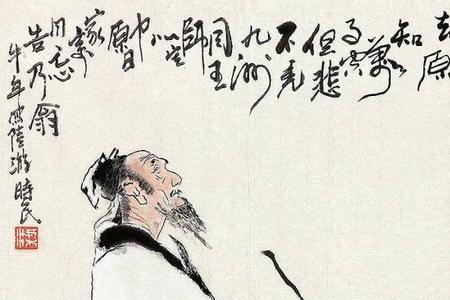 去原
知
萬
事空
但悲
不見
九州
同王
師
北定
中
原日
家祭
毋忘
告乃翁
牛年寫陸游時民